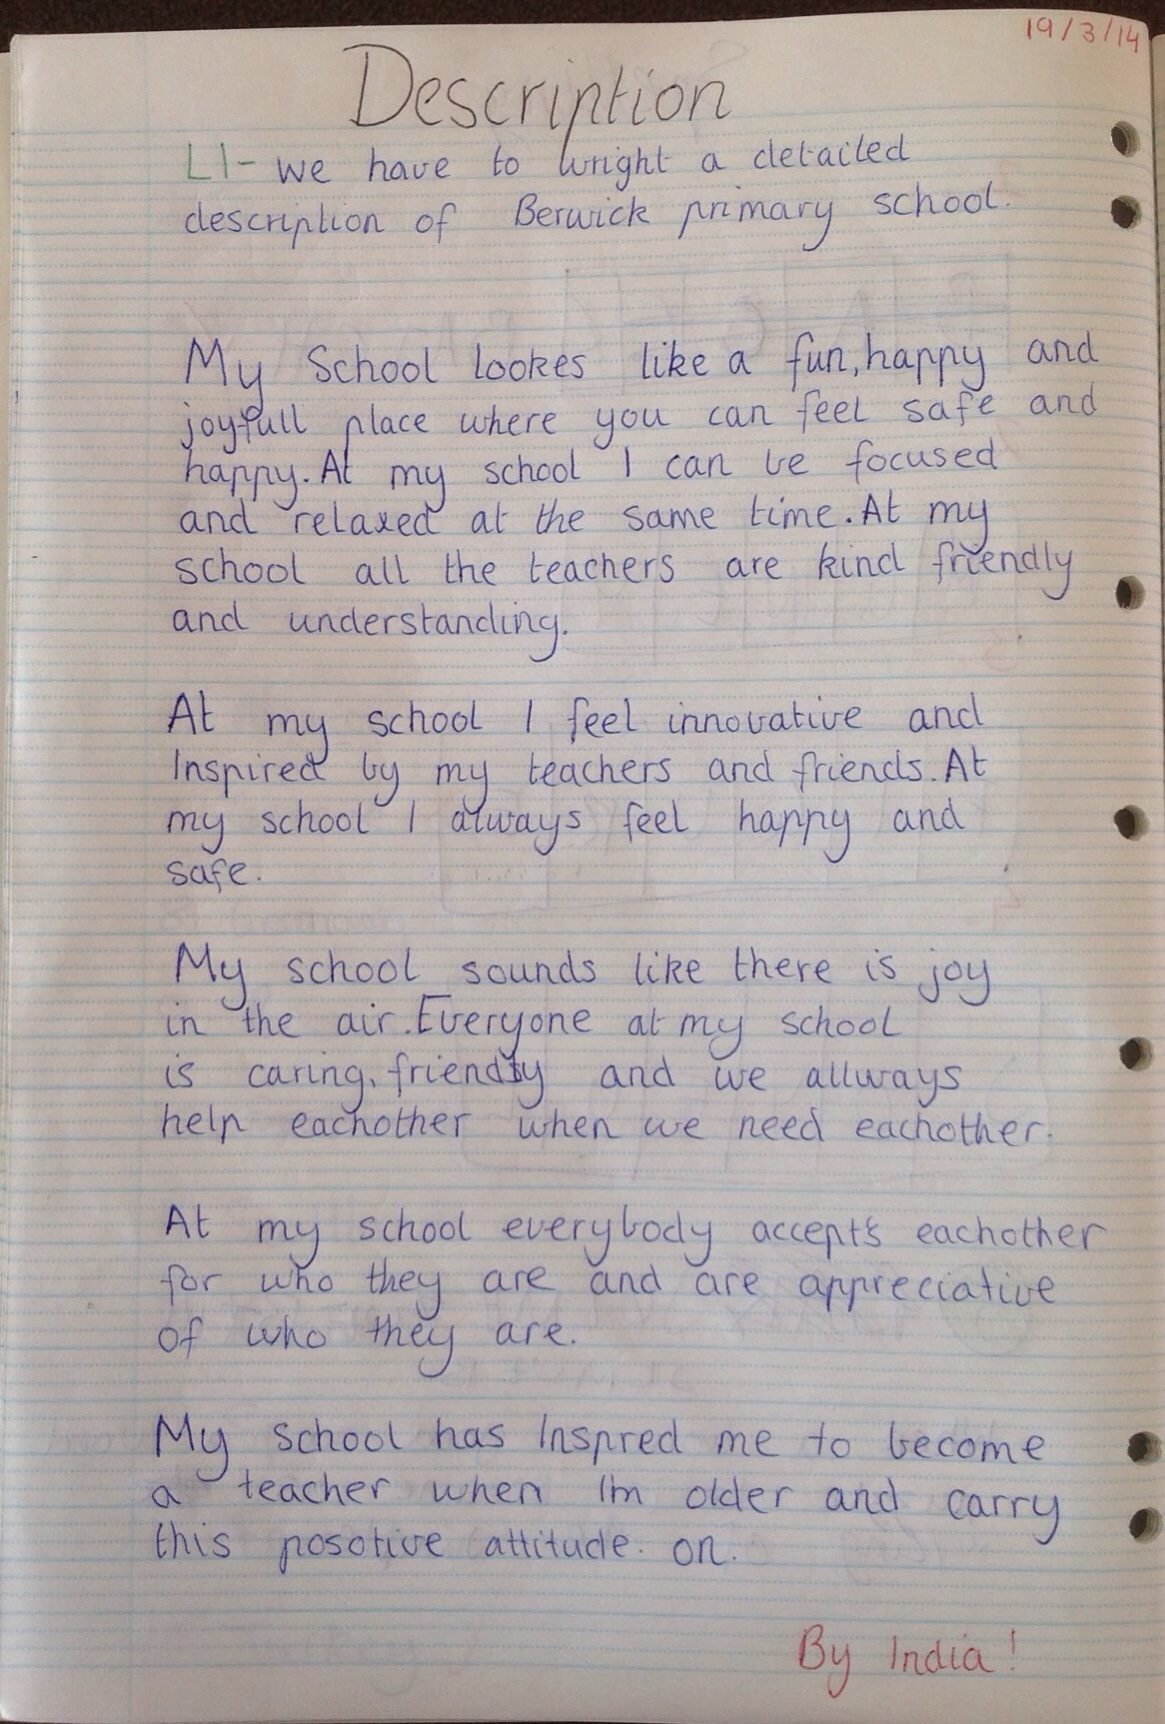 19/3/14
Description
LI- we have to wright a detailed
description of Berwick primary school.
My School lookes like a fun, happy and
joyfull place where you can feel safe and
happy. At my school I can be focused
and relaxed at the same time. At my
school all the teachers are kind friendly
and understanding.
At my school I feel innovative and
Inspired by my teachers and friends. At
my school I always feel happy and
safe.
My school sounds like there is joy
in the air. Everyone at my school
is caring, friendly and we allways
help eachother when we need eachother.
At my school everybody accepts eachother
for who they are and are appreciative
of who they are.
My school has Inspred me to become
a teacher when I'm older and carry
this posotive attitude. on.
By India!